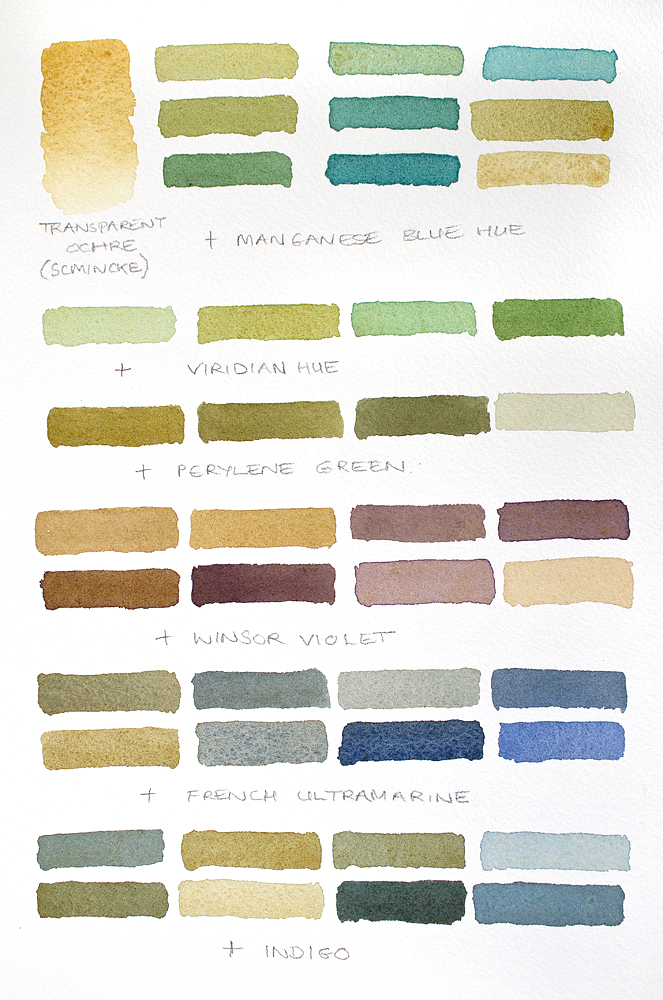 TRANSPARENT
OCHRE
(SCMINCKE)
+ MANGANESE BLUE HUE
+ VIRIDIAN HUE
+ PERYLENE GREEN.
+ WINSOR VIOLET
+ FRENCH ULTRAMARINE
+ INDIGO